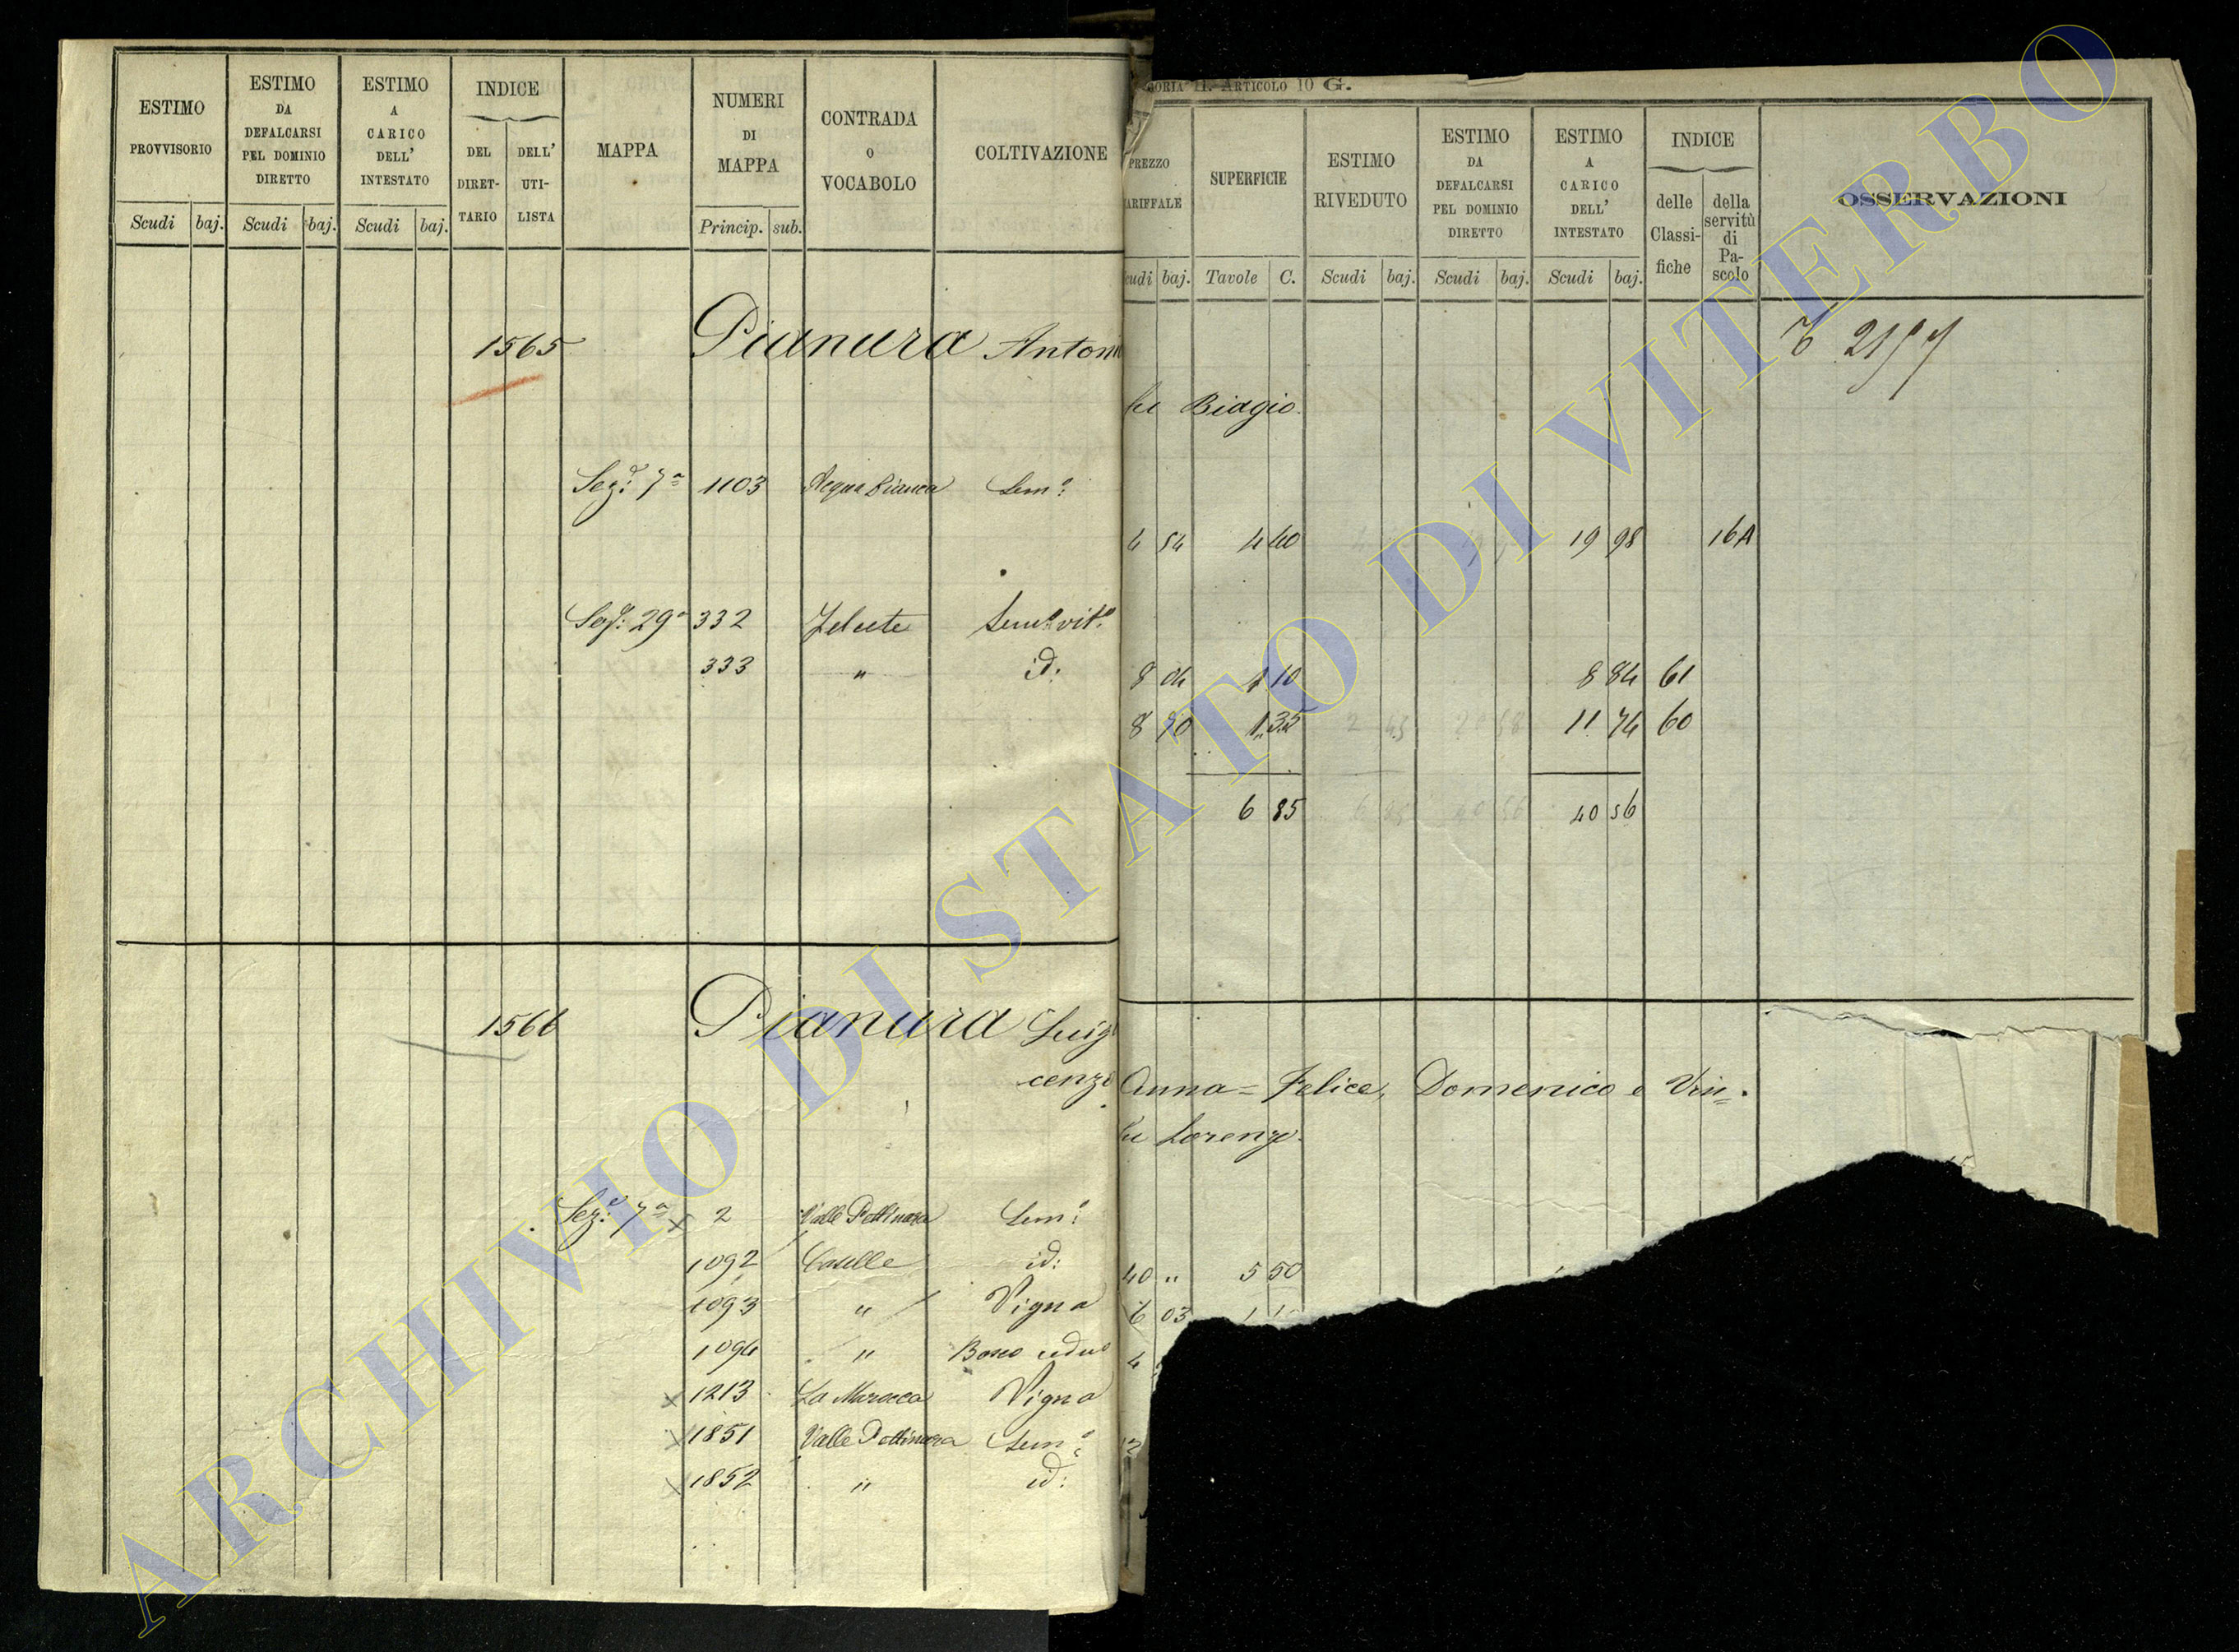 ESTIMO PROVVISORIO
Scudi baj.
ESTIMO DA DEFALCARSI PEL DOMINIO DIRETTO
Scudi baj.
ESTIMO A CARICO DELL' INTESTATO
Scudi baj.
INDICE
DEL DIRET- TARIO
DELL' UTI- LISTA
MAPPA
NUMERI DI MAPPA
Princip. sub.
CONTRADA O VOCABOLO
COLTIVAZIONE
1565 Pianura Anton
Sez: 7a 1103 Acqua bianca Sem:o
Sez: 29a 332 Sem:o vit:o
333 " id:
1566 Pianura Luig
cenzo
Sez: 7a x 2 Valle Pettinara Sem:o
1092 Caselle id:
1093 " Vigna
1094 " Bosco ceduo
x 1213 La Maracca Vigna
x 1851 Valle Pettinara Sem:o
x 1852 " id:
ORIA II. ARTICOLO 10 G.
PREZZO ARIFFALE
cudi baj.
SUPERFICIE
Tavole C.
ESTIMO RIVEDUTO
Scudi baj.
ESTIMO DA DEFALCARSI PEL DOMINIO DIRETTO
Scudi baj.
ESTIMO A CARICO DELL' INTESTATO
Scudi baj.
INDICE
delle Classi- fiche
della servitù di Pa- scolo
OSSERVAZIONI
fu Biagio.
4 54 4 40 19 98 16A
8 04 1 10 8 84 61
8 70 1 35 11 74 60
6 85 40 56
Anna = Felice, Domenico e Vin=
fu Lorenzo.
40 " 5 50
6 03
4
12
ARCHIVIO DI STATO DI VITERBO